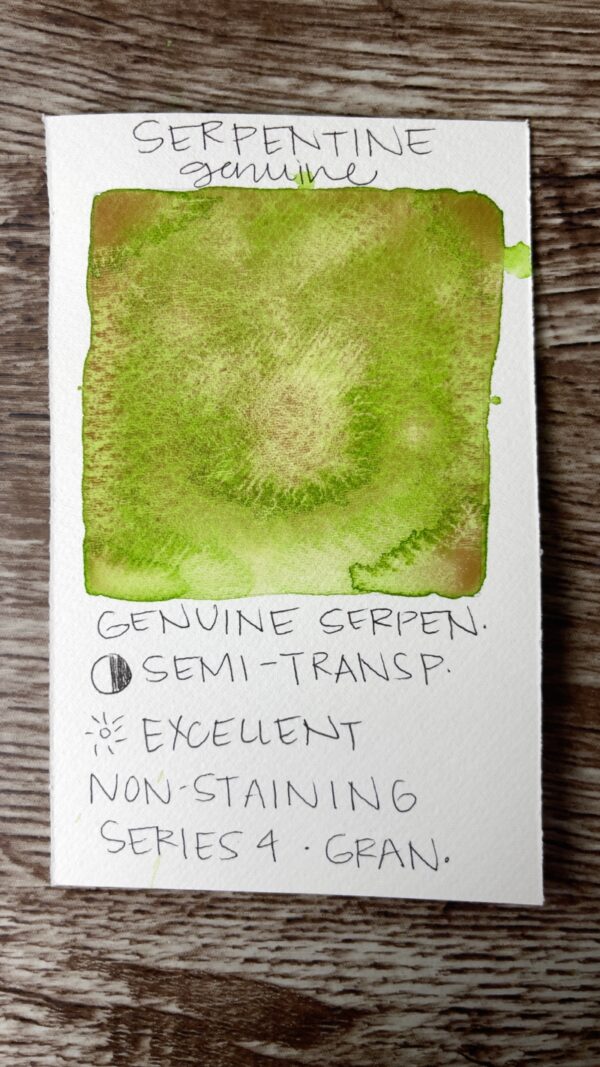 SERPENTINE
genuine
GENUINE SERPEN.
SEMI-TRANSP.
EXCELLENT
NON-STAINING
SERIES 4 · GRAN.